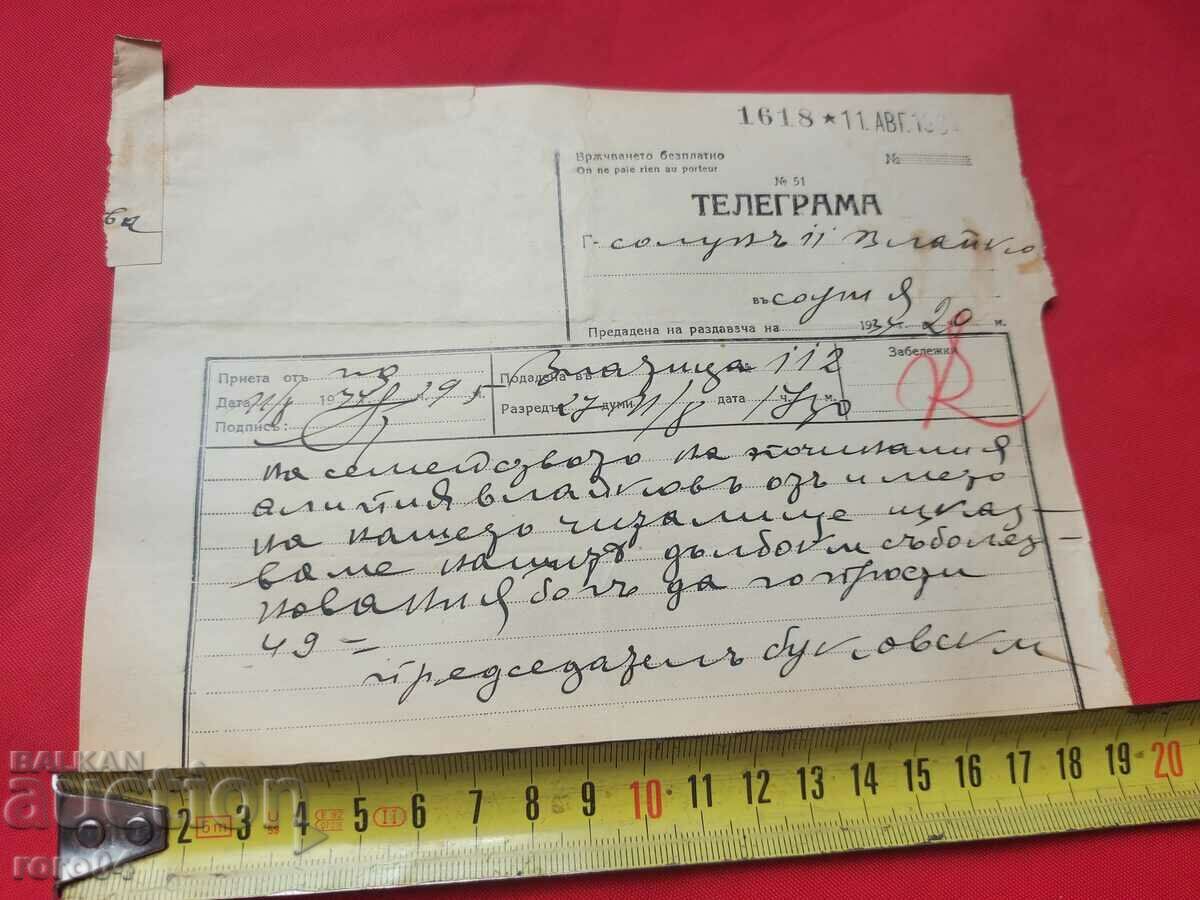 1618 ★ 11. АВГ. 193
Врѫчването безплатно
On ne paie rien au porteur
№
№ 51
ТЕЛЕГРАМА
Г- солунъ 11 Влайко
въ софия
Предадена на раздавача на 1934 г. 20 ч. м.
Приета отъ по
Подадена въ Влазица 112
Забележки
Дата 11/8 1934 г. 19 ч. м.
Разредъ 27 думи 11/8 дата ч. 1730 м.
Подписъ:
на семейдството на починалия
алипия влайковъ отъ името
на нашето читалище изказ-
ваме нашитѣ дълбоки съболез-
нования богъ да го прости
49 -
председателъ буковски
ва
BALKAN
auction
roro84
2 3 4 5 6 7 8 9 10 11 12 13 14 15 16 17 18 19 20
5m II